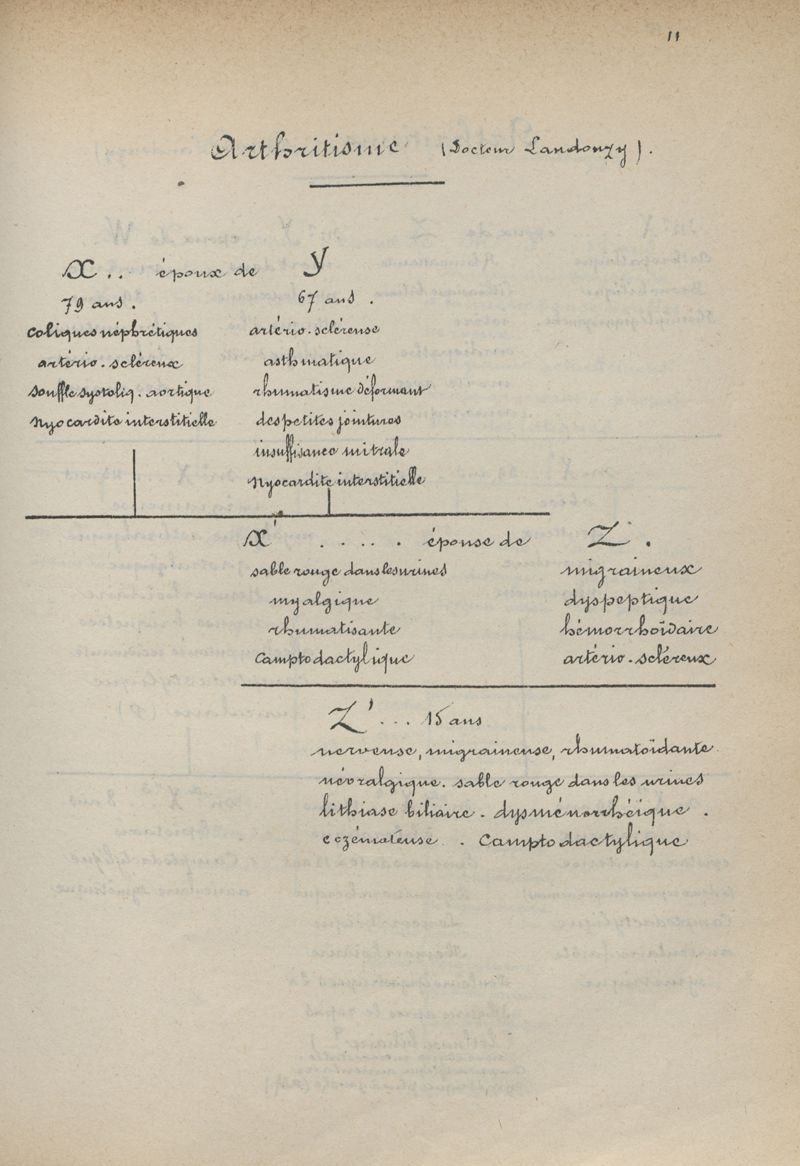 11
Arthritisme (Docteur Landouzy).
X .. époux de Y
79 ans. 67 ans.
Coliques néphrétiques artério-scléreuse
artério-scléreux asthmatique
Souffle systoliq. aortique rhumatisme déformant
Myocardite interstitielle des petites jointures
insuffisance mitrale
Myocardite interstitielle
X' . . . . . épouse de Z.
sable rouge dans les urines migraineux
myalgique dyspeptique
rhumatisante hémorrhoïdaire
Camptodactylique artério-scléreux
Z' ... 15 ans
nerveuse, migraineuse, rhumatoïdante
névralgique. sable rouge dans les urines
lithiase biliaire. dysménorrhéique.
eczémateuse. Camptodactylique